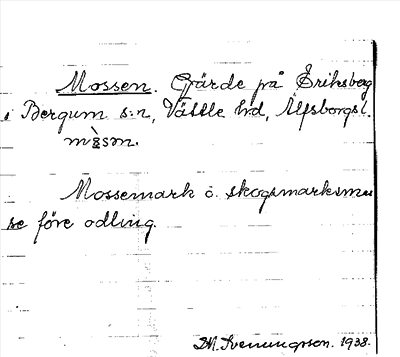 Mossen. Gärde på Eriksberg
i Bergum s:n, Vättle hd, Älfsborgs l.
Mossemark o. skogsmarksma
se före odling.
Svenungsson. 1938.